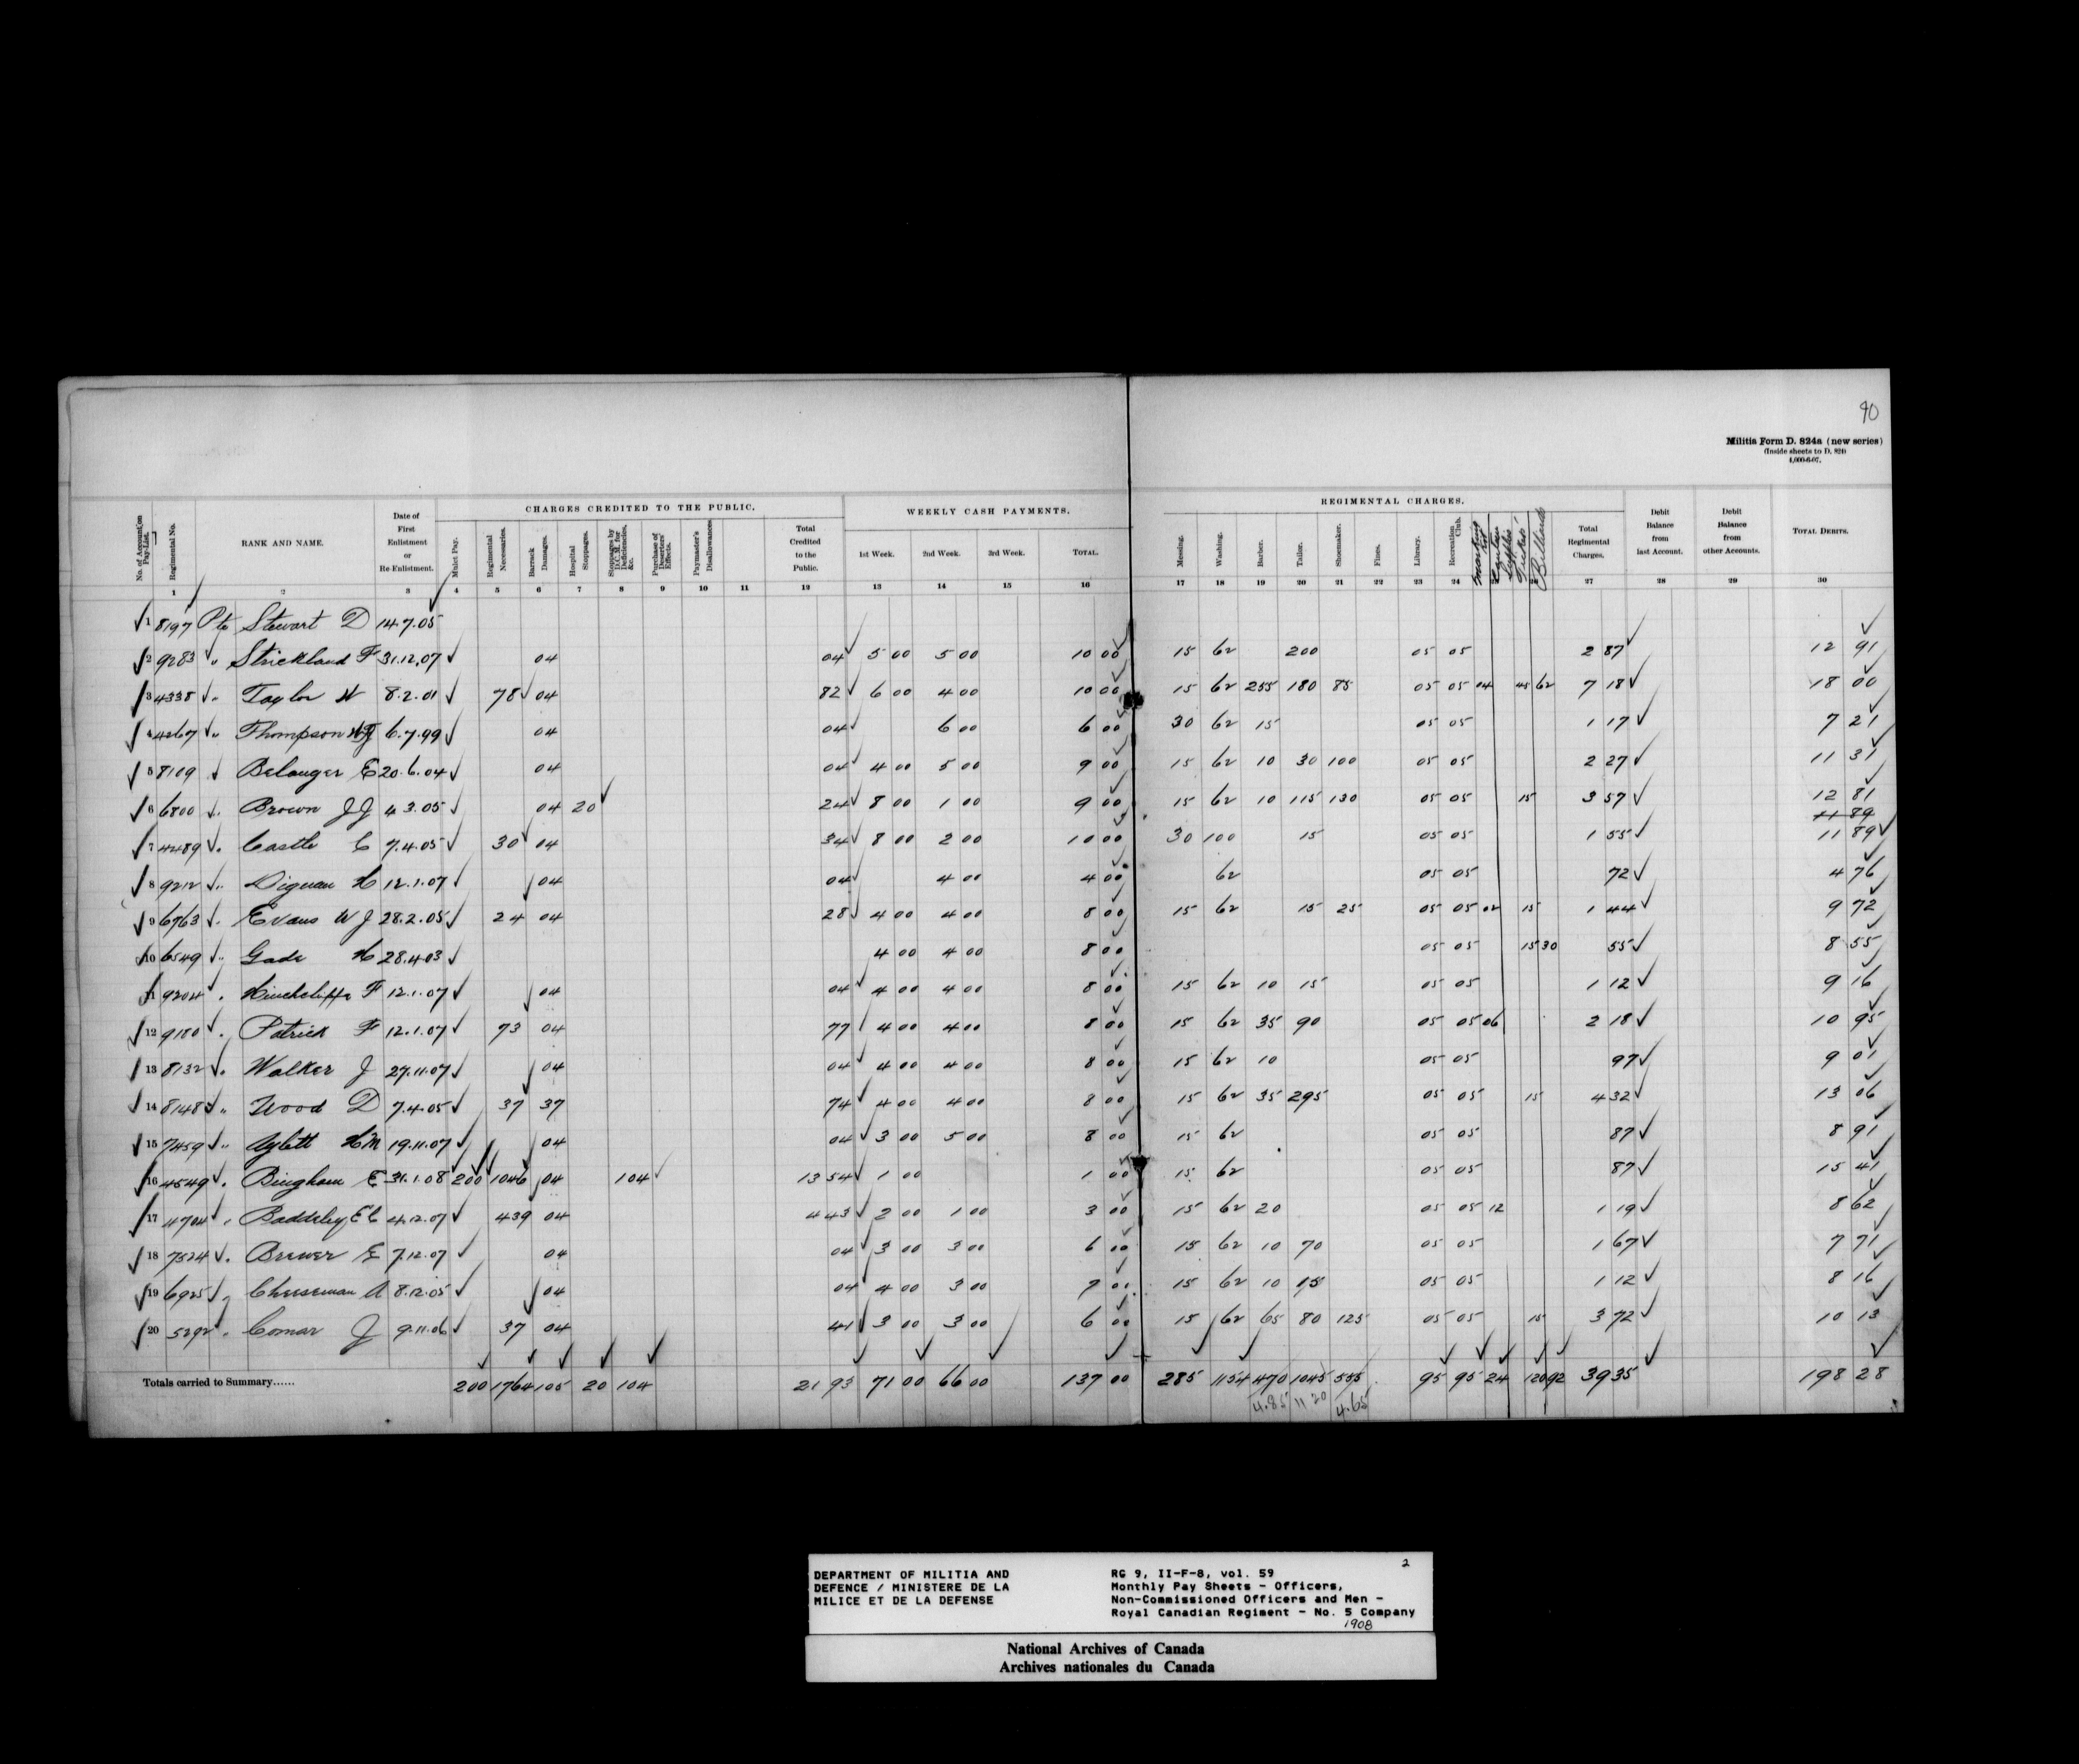 90
Militia Form D. 824a (new series)
(Inside sheets to D. 824)
1,000-6-07.
CHARGES CREDITED TO THE PUBLIC. WEEKLY CASH PAYMENTS. REGIMENTAL CHARGES.
No. of Account on Pay-List. Regimental No. RANK AND NAME. Date of First Enlistment or Re-Enlistment. Mulct Pay. Regimental Necessaries. Barrack Damages. Hospital Stoppages. Stoppages by D.C.M. for Deficiencies, &c. Purchase of Deserters' Effects. Paymaster's Disallowances Total Credited to the Public. 1st Week. 2nd Week. 3rd Week. TOTAL. Messing. Washing. Barber. Tailor. Shoemaker. Fines. Library. Recreation Club. Marking Kit Supplies Tickets Billiards Total Regimental Charges. Debit Balance from last Account. Debit Balance from other Accounts. TOTAL DEBITS.
1 2 3 4 5 6 7 8 9 10 11 12 13 14 15 16 17 18 19 20 21 22 23 24 27 28 29 30
1 8197 Pte Stewart D 14.7.05
2 9283 " Strickland F 31.12.07 04 04 5 00 5 00 10 00 15 62 200 05 05 2 87 12 91
3 4338 " Taylor W 8.2.01 78 04 82 6 00 4 00 10 00 15 62 255 180 85 05 05 04 45 62 7 18 18 00
4 4267 " Thompson WJ 6.7.99 04 04 6 00 6 00 30 62 15 05 05 1 17 7 21
5 8109 Belanger E 20.6.04 04 04 4 00 5 00 9 00 15 62 10 30 100 05 05 2 27 11 31
6 6800 " Brown JJ 4 3.05 04 20 24 8 00 1 00 9 00 15 62 10 115 130 05 05 15 3 57 12 81
11 89
7 4489 " Castle C 7.4.05 30 04 34 8 00 2 00 10 00 30 100 15 05 05 1 55 11 89
8 9212 " Dignan H 12.1.07 04 04 4 00 4 00 62 05 05 72 4 76
9 6763 " Evans WJ 28.2.05 24 04 28 4 00 4 00 8 00 15 62 15 25 05 05 02 15 1 44 9 72
10 6549 " Gade H 28.4.03 4 00 4 00 8 00 05 05 15 30 55 8 55
11 9204 " Hinchcliffe F 12.1.07 04 04 4 00 4 00 8 00 15 62 10 15 05 05 1 12 9 16
12 9180 " Patrick F 12.1.07 73 04 77 4 00 4 00 8 00 15 62 35 90 05 05 06 2 18 10 95
13 8132 " Walker J 27.11.07 04 04 4 00 4 00 8 00 15 62 10 05 05 97 9 01
14 8148 " Wood D 7.4.05 37 37 74 4 00 4 00 8 00 15 62 35 295 05 05 15 4 32 13 06
15 7459 " Aylett HM 19.11.07 04 04 3 00 5 00 8 00 15 62 05 05 87 8 91
16 4549 " Bingham E 31.1.08 200 1046 04 104 13 54 1 00 1 00 15 62 05 05 87 15 41
17 4704 " Baddeley EC 4.12.07 439 04 4 43 2 00 1 00 3 00 15 62 20 05 05 12 1 19 8 62
18 7524 " Brewer E 7.12.07 04 04 3 00 3 00 6 00 15 62 10 70 05 05 1 67 7 71
19 6925 " Cheeseman A 8.12.05 04 04 4 00 3 00 7 00 15 62 10 15 05 05 1 12 8 16
20 5292 " Comar J 9.11.06 37 04 41 3 00 3 00 6 00 15 62 65 80 125 05 05 15 3 72 10 13
Totals carried to Summary...... 200 1764 105 20 104 21 93 71 00 66 00 137 00 285 1154 470 1045 555 95 95 24 120 92 39 35 198 28
4.85 11 20 4.65
2
DEPARTMENT OF MILITIA AND
DEFENCE / MINISTERE DE LA
MILICE ET DE LA DEFENSE
RG 9, II-F-8, vol. 59
Monthly Pay Sheets - Officers,
Non-Commissioned Officers and Men -
Royal Canadian Regiment - No. 5 Company
1908
National Archives of Canada
Archives nationales du Canada